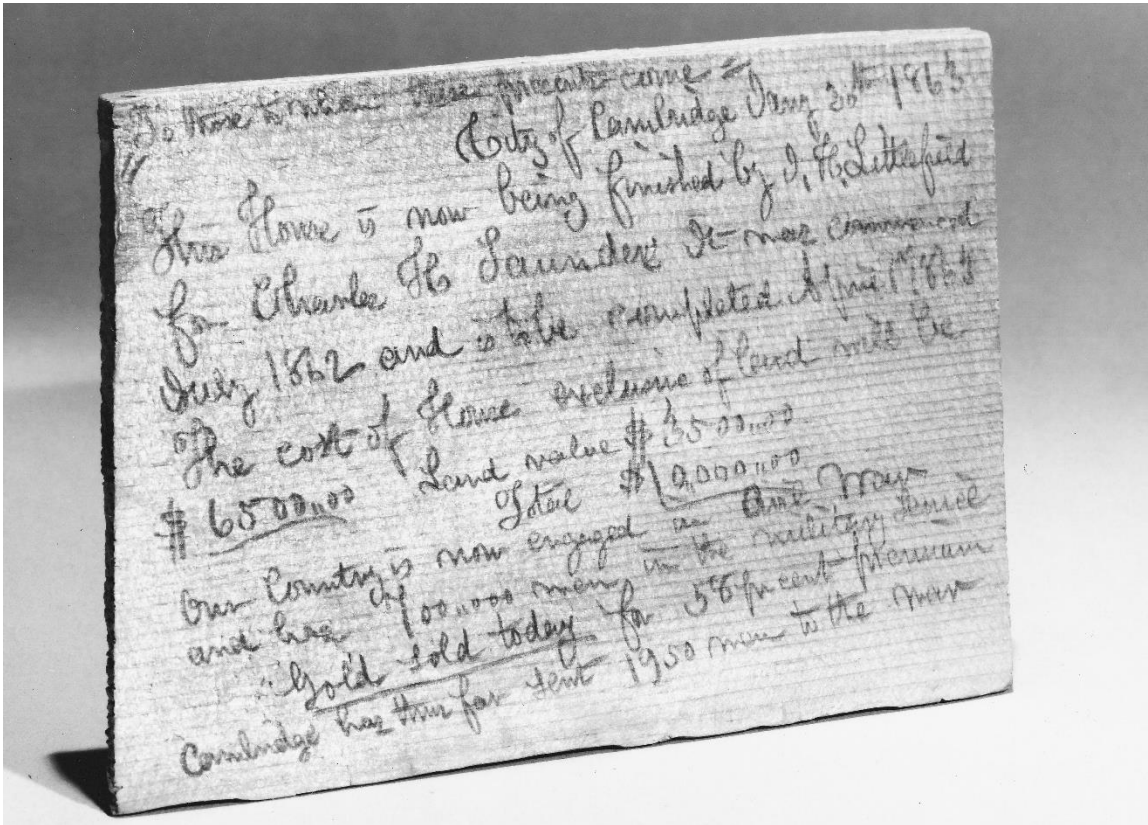 To those to whom these presents come =
" City of Cambridge Jany 30th 1863
This House is now being finished by I. H. Littlefield
for Charles H Saunders It was commenced
July 1862 and is to be completed April 1st 1863
The cost of House exclusive of land will be
$6500,,00 Land value $3500,,00
Total $10,000,,00
Our Country is now engaged in Civil War
and has 900,,000 men in the military service
Gold sold today for 58 pr cent premium
Cambridge has thus far sent 1950 men to the war